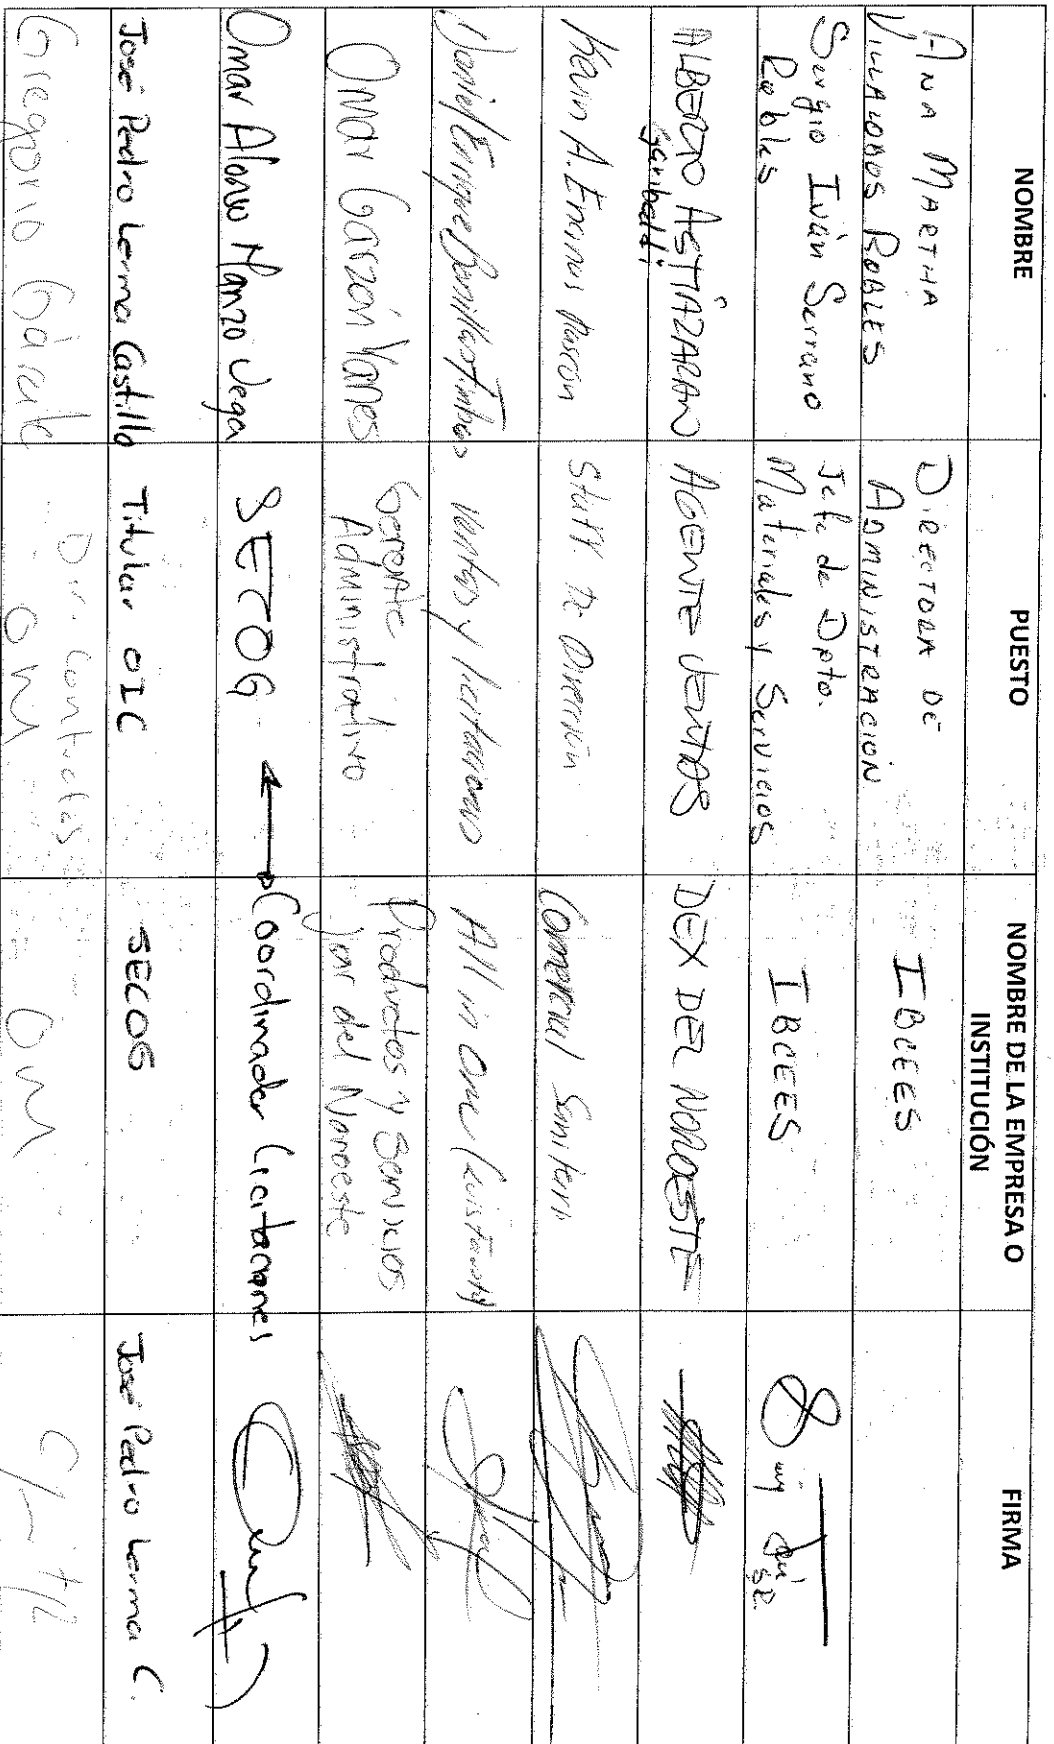 NOMBRE
PUESTO
NOMBRE DE LA EMPRESA O
INSTITUCIÓN
FIRMA
ANA MARTHA
VILLALOBOS ROBLES
DIRECTORA DE
ADMINISTRACION
IBCEES
Sergio Iván Serrano
Robles
Jefe de Dpto.
Materiales y Servicios
IBCEES
ALBERTO ASTIAZARAN
Garibaldi
AGENTE VENTAS
DEX DEL NOROESTE
Kevin A. Encinas Rascón
Staff. De Dirección
Comercial Saniterr
Daniel Enrique Bonillas
Ventas y Licitaciones
All in One
Omar Garzón Yanes
Gerente
Administrativo
Productos y Servicios
Jar del Noroeste
Omar Alonso Manzo Vega
SECOG
Coordinador Licitaciones
José Pedro Lerma Castillo
Titular OIC
SECOG
José Pedro Lerma C.
Gregorio Gárate
Dir. Contratos
OM
OM